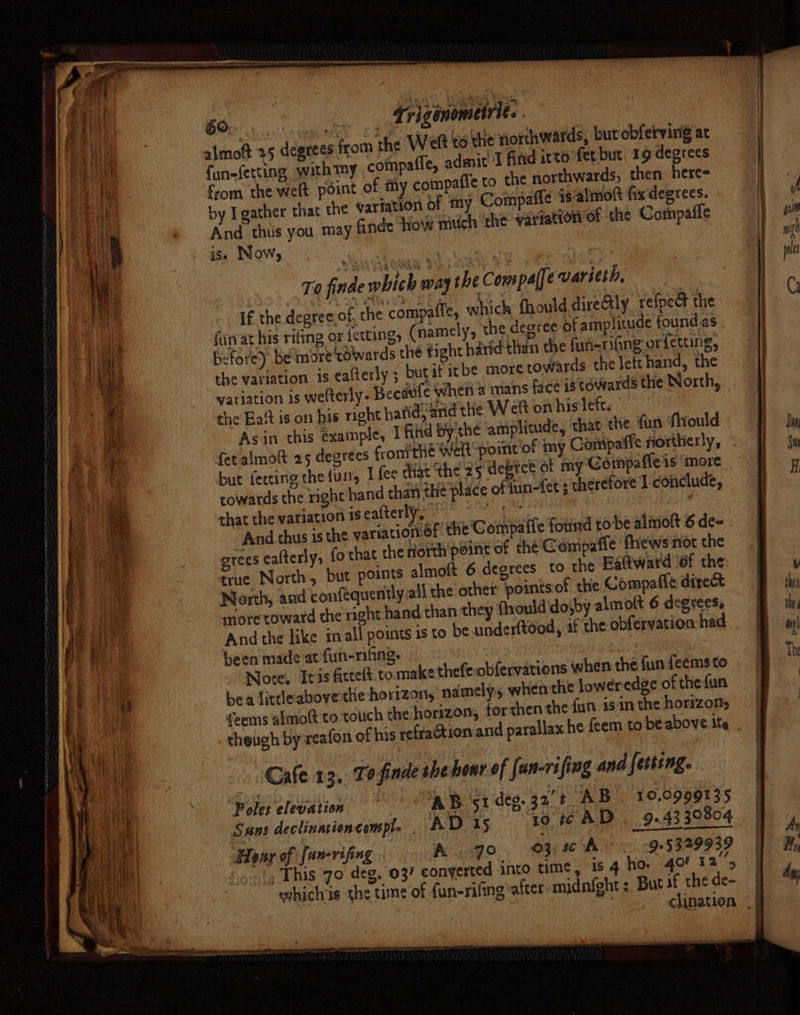 60 Trigonometrie.
almoſt 25 degrees from the Weſt to the northwards, but obſerving at
ſun-ſetting with my compaſſe, admit I find it to ſet but 19 degrees
from the weſt point of my compaſſe to the northwards, then here-
by I gather that the variation of my Compaſſe is almoſt ſix degrees.
And thus you may finde how much the variation of the Compaſſe
is. Now,
To finde which way the Compaſſe varieth,
If the degree of the compaſſe, which ſhould directly reſpect the
ſun at his riſing or ſetting, (namely, the degree of amplitude found as
before) be more towards the right hand than the ſun-riſing or ſetting,
the variation is eaſterly; but if it be more towards the left hand, the
variation is weſterly. Becauſe when a mans face is towards the North,
the Eaſt is on his right hand, and the Weſt on his left.
As in this example, I find by the amplitude, that the ſun ſhould
ſet almoſt 25 degrees from the Weſt point of my Compaſſe northerly,
but ſetting the ſun, I ſee that the 25 degree of my Compaſſe is more
towards the right hand than the place of ſun-ſet; therefore I conclude,
that the variation is eaſterly.
And thus is the variation of the Compaſſe found to be almoſt 6 de-
grees eaſterly, ſo that the north point of the Compaſſe ſhews not the
true North, but points almoſt 6 degrees to the Eaſtward of the
North, and conſequently all the other points of the Compaſſe direct
more toward the right hand than they ſhould do, by almoſt 6 degrees.
And the like in all points is to be underſtood, if the obſervation had
been made at ſun-riſing.
Note. It is fitteſt to make theſe obſervations when the ſun ſeems to
be a little above the horizon, namely, when the lower edge of the ſun
ſeems almoſt to touch the horizon, for then the ſun is in the horizon,
though by reaſon of his refraction and parallax he ſeem to be above it.
Caſe 13. To finde the hour of ſun-riſing and ſetting.
Poles elevation AB 51 deg. 32' t AB 10,0999135
Suns declination compl. AD 15 10 tc AD 9.4330804
Hour of ſun-riſing A 70 03, sc A 9.5329939
This 70 deg. 03' converted into time, is 4 ho. 40' 12'',
which is the time of ſun-riſing after midnight: But if the de-
clination